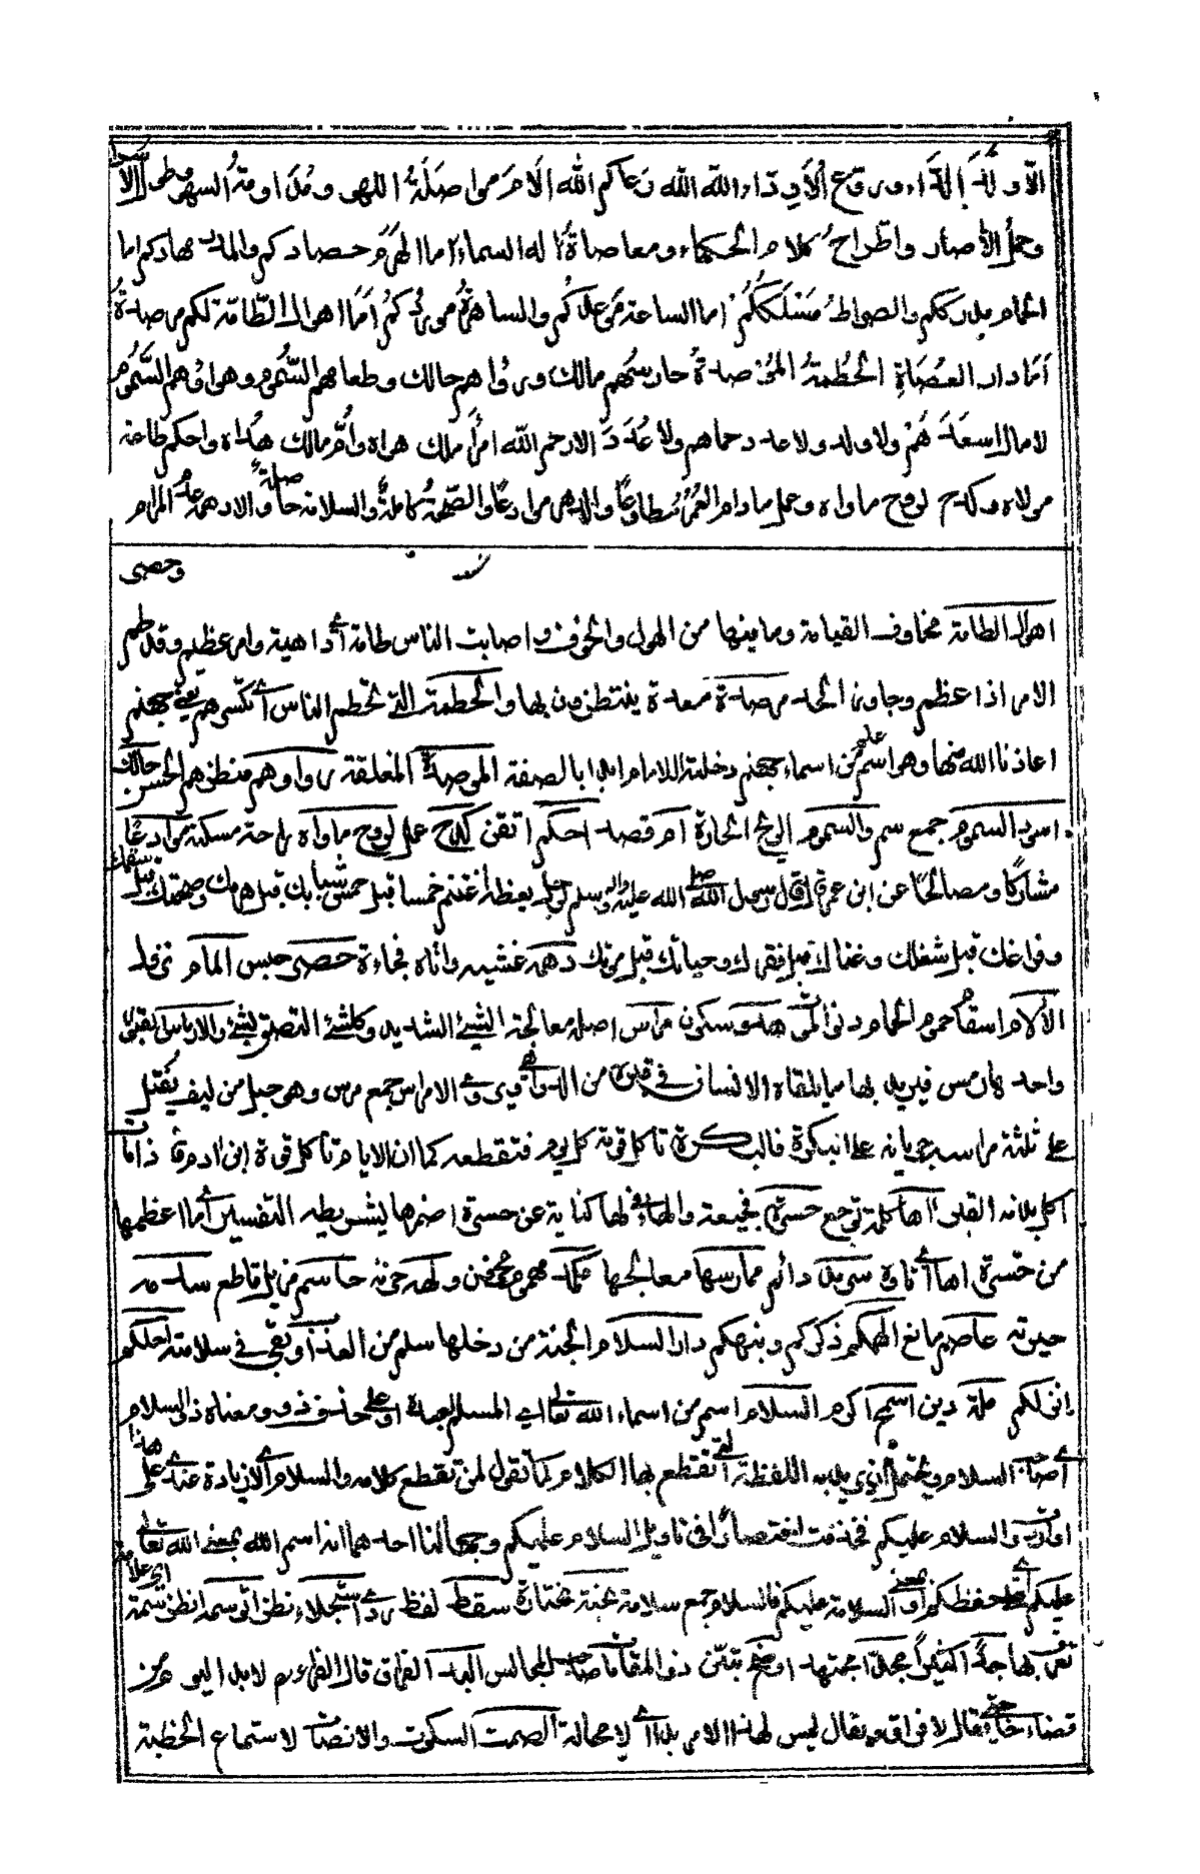 الأود الداء وروع الأوداء الله الله رعاكم الله الام مواصلة اللهو ومداومة السهو وطول الاصرار
وحمل الآصار واطراح كلام الحكماء ومعاصاة اله السماء اما الهرم حصادكم والمدر مهادكم اما
الحمام مدرككم والصراط مسلككم اما الساعة موعدكم والساهرة موردكم أما اهوال الطامة لكم مرصدة
أما دار العصاة الحطمة المؤصدة حارسهم مالك ورواؤهم حالك وطعامهم السموم وهواؤهم السموم
لا مال اسعدهم ولا ولد ولا عدد حماهم ولا عدد الا رحم الله امرأ ملك هواه وأم مسالك هداه واحكم طاعة
مولاه وكدح لروح مأواه وعمل ما دام العمر مطاوعا والدهر موادعا والصحة كاملة والسلامة حاصلة والا دهمه عدم المرام
وحصر
اهوال الطامة مخاوف القيامة وما فيها من الهول والخوف واصابت الناس طامة أي داهية وامر عظيم وقد طم
الامر اذا عظم وجاوز الحد مرصدة معدة ينتظرون بها والحطمة التي تحطم الناس أي تكسرهم يعني جهنم
اعاذنا الله منها وهو اسم علم من اسماء جهنم دخلته اللام ابدا بالصفة الموصدة المغلقة رواؤهم منظرهم الحسن حالك
اسود السموم جمع سم والسموم الريح الحارة أم قصد احكم اتقن كدح عمل لروح مأواه راحة مسكنه موادعا
مشاركا ومصالحا عن ابن عمر قال قال رسول الله صلى الله عليه واله وسلم لرجل يعظه اغتنم خمسا قبل خمس شبابك قبل هرمك وصحتك قبل سقمك
وفراغك قبل شغلك وغناك قبل فقرك وحياتك قبل موتك دهمه غشيه واتاه فجاءة حصر حبس المام نزول
الآلام اسقام حموم الحمام دنو الموت هدو سكون مراس اصله معالجة الشيء الشديد وكل شيء التصق بشيء والارماس القبور
واحدها رمس فيريد بها ما يلقاه الانسان في قبره من الدواهي ويروى الامراس جمع مرس وهو حبل من ليف يفتل
على ثلثة مراسه جريانه على البكرة فالبكرة تأكل قوته كل يوم فتقطعه كما ان الايام تأكل قوة ابن ادم
اكل بدنه القلب آها كلمة توجع حسرة فجيعة والهاء في لها كناية عن حسرة اضمرها بشريطة التفسير أي ما اعظمها
من حسرة المها أي اذاه سرمد دائم ممارسها معالجها مكمد مهموم محزن ولهه حزنه حاسم مزيل قاطع سدمه
حيرته عاصم مانع الهمكم ذكركم ونبهكم دار السلام الجنة من دخلها سلم من العذاب وبقي في سلامة احلكم
انزلكم ملة دين اسمح اكرم السلام اسم من اسماء الله تعالى أي المسلم لعباده او على حذف ذو ومعناه ذو السلام
أي صاحب السلام ويحتمل ان يريد بهذه اللفظة أي تقطع بها الكلام كما تقول لمن تقطع كلامه والسلام أي لا زيادة عندي على هذا
او والسلام عليكم فحذفت اختصارا في تأويل السلام عليكم وجهان احدهما انه اسم الله بمعنى الله تعالى
عليكم أي حفظكم او بمعنى السلامة عليكم فالسلام جمع سلامة نخبة مختارة سقط لفظ ردي استجلاء نظر اتوسمه انظر سمته أي علامته
تعرف بها جدا كثيرا مجدا مجتهدا اوضح بتبين ذو المقامات صاحب المجالس البعد الفراق قال الفراء لا بد اليوم من
قضاء حاجتي يقال لا فراق ويقال ليس لهذا الامر بد أي لا محالة الصمت السكوت والانصات لاستماع الخطبة